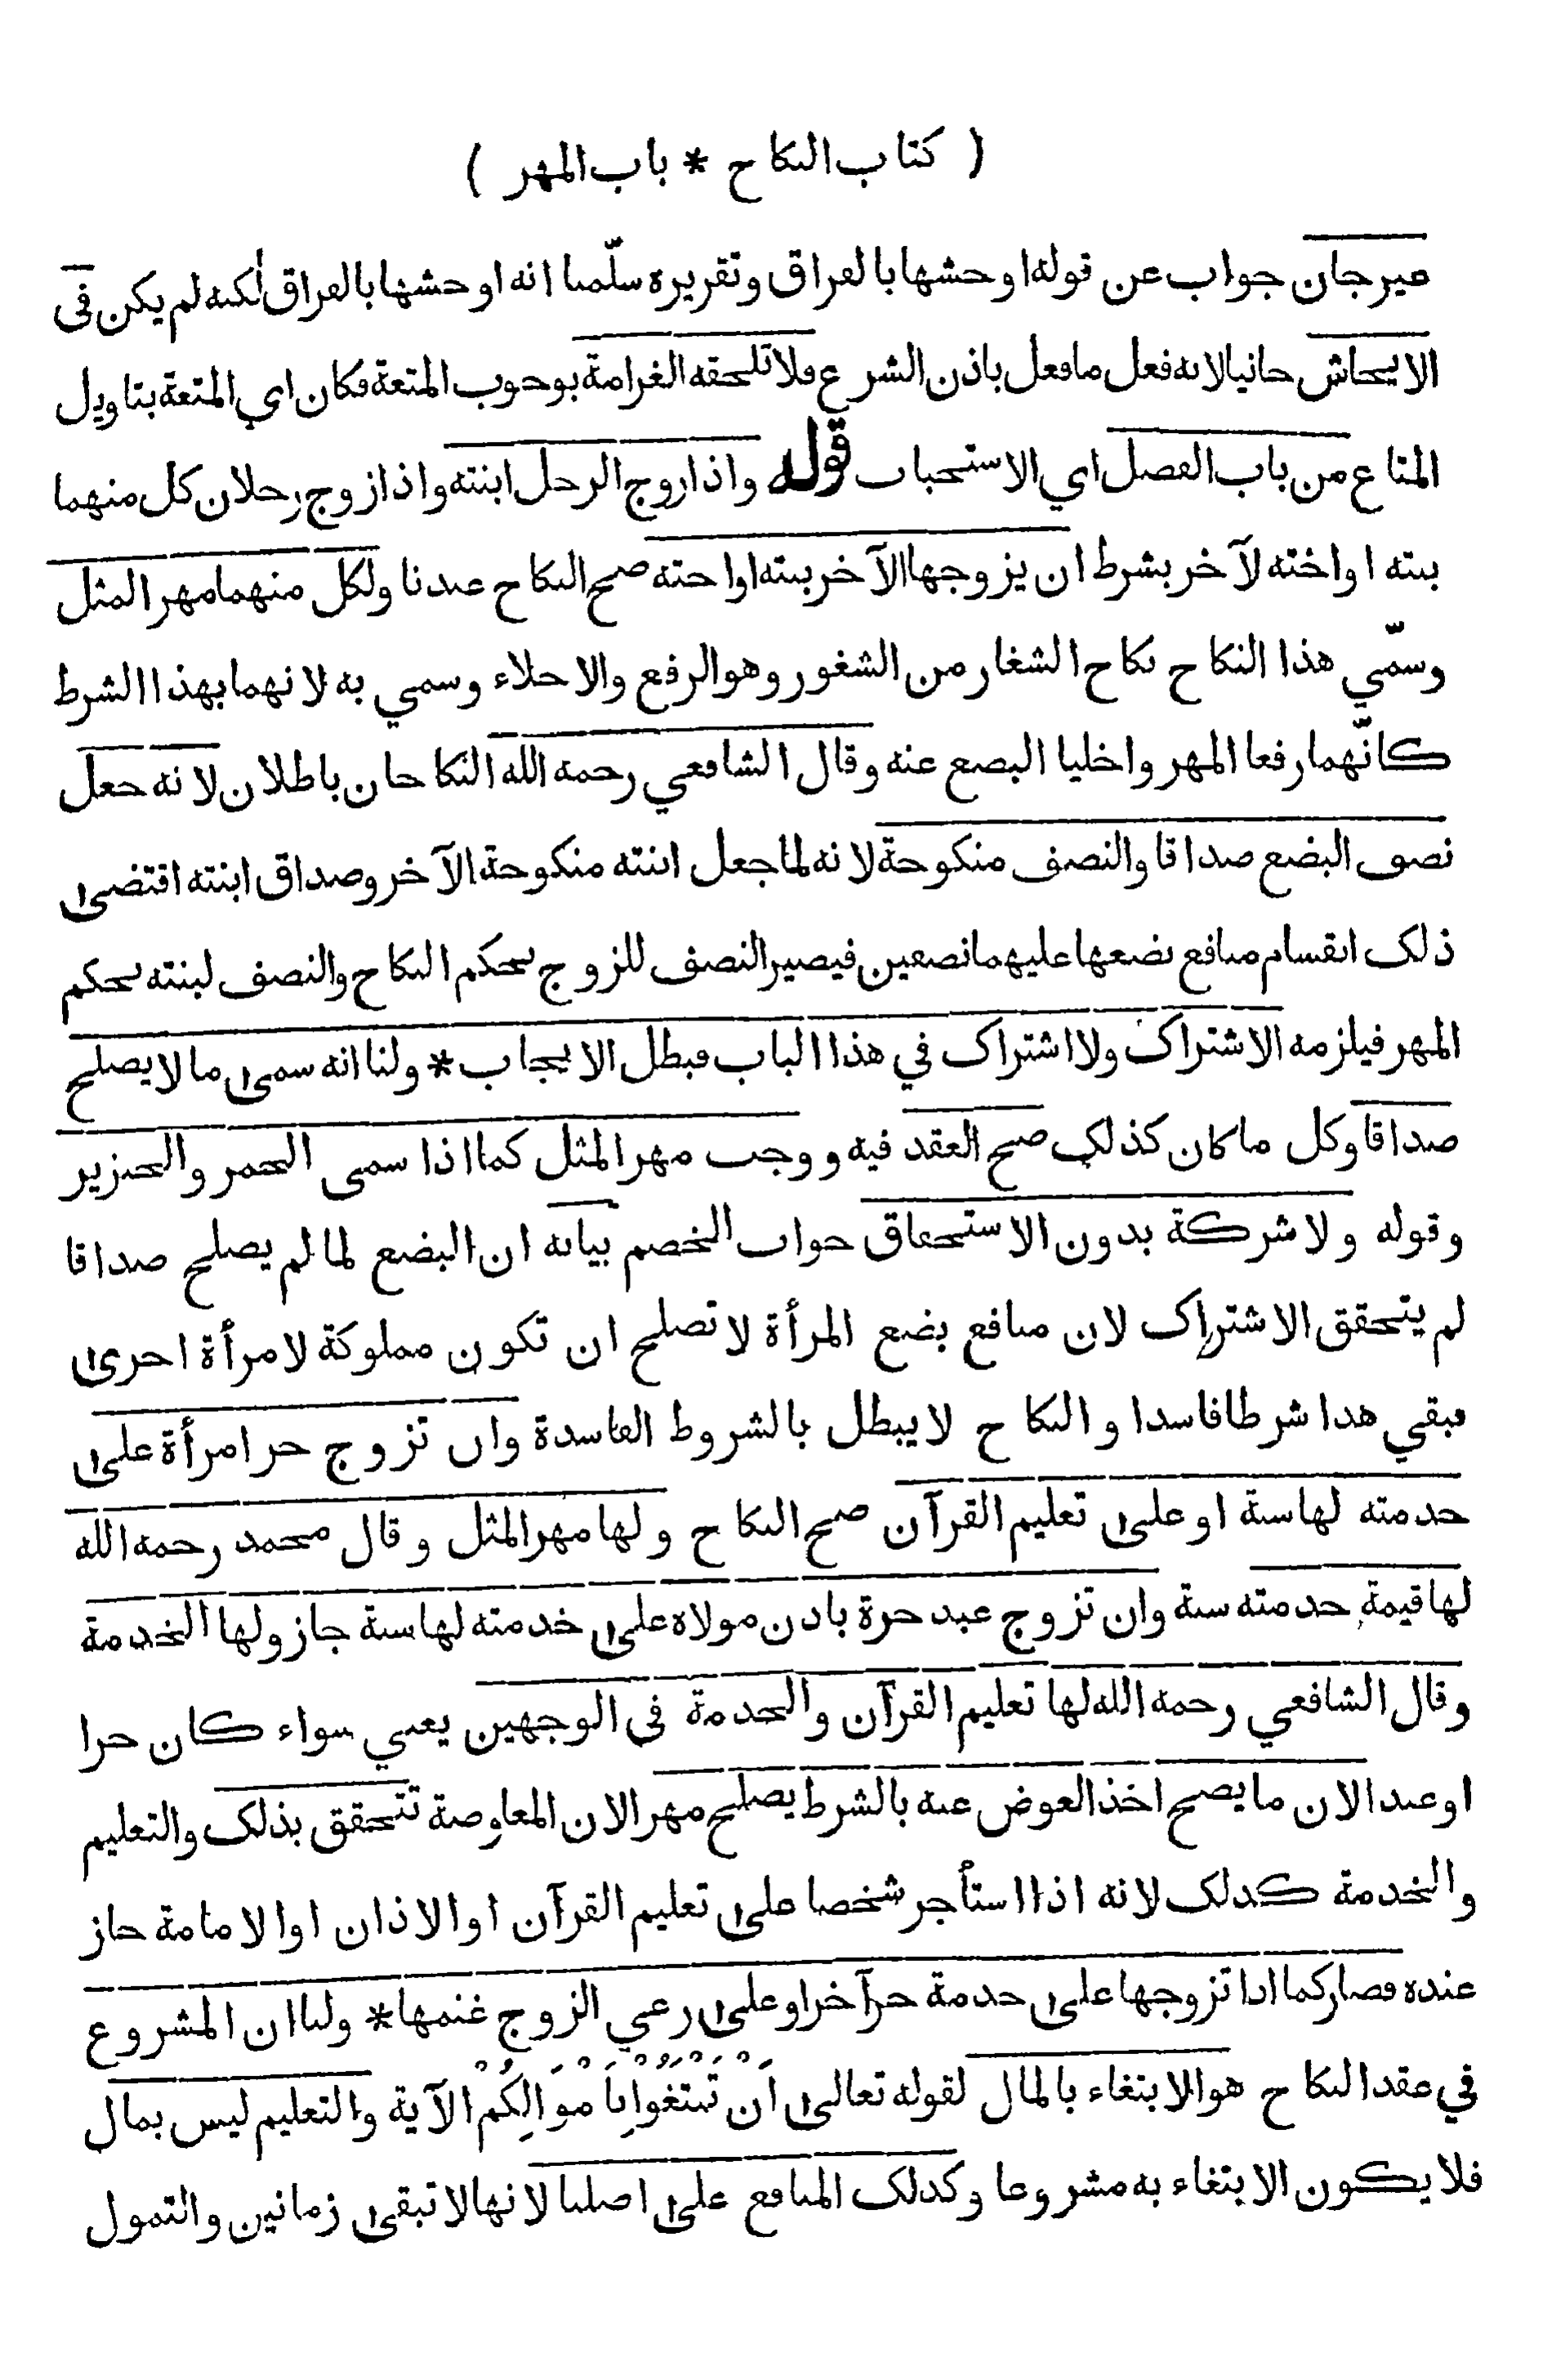 ( كتاب النكاح * باب المهر )
غير جان جواب عن قوله اوحشها بالفراق وتقريره سلّمنا انه اوحشها بالفراق لٰكنه لم يكن في
الايحاش جانيا لانه فعل ما فعل باذن الشرع فلا تلحقه الغرامة بوجوب المتعة فكان اي المتعة بتاويل
المتاع من باب الفضل اي الاستحباب قوله واذا زوج الرجل ابنته واذا زوج رجلان كل منهما
بنته او اخته لآخر بشرط ان يزوجها الآخر بنته او اخته صح النكاح عندنا ولكل منهما مهر المثل
وسمّي هذا النكاح نكاح الشغار من الشغور وهو الرفع والاخلاء وسمي به لانهما بهذا الشرط
كانّهما رفعا المهر واخليا البضع عنه وقال الشافعي رحمه الله النكاحان باطلان لانه جعل
نصف البضع صداقا والنصف منكوحة لانه لما جعل ابنته منكوحة الآخر وصداق ابنته اقتضى
ذلك انقسام منافع بضعها عليهما نصفين فيصير النصف للزوج بحكم النكاح والنصف لبنته بحكم
المهر فيلزمه الاشتراك ولا اشتراك في هذا الباب فبطل الايجاب * ولنا انه سمى ما لا يصلح
صداقا وكل ما كان كذلك صح العقد فيه ووجب مهر المثل كما اذا سمى الخمر والخنزير
وقوله ولا شركة بدون الاستحقاق جواب الخصم بيانه ان البضع لما لم يصلح صداقا
لم يتحقق الاشتراك لان منافع بضع المرأة لا تصلح ان تكون مملوكة لامرأة اخرى
فبقي هذا شرطا فاسدا والنكاح لا يبطل بالشروط الفاسدة وان تزوج حر امرأة على
خدمته لها سنة او على تعليم القرآن صح النكاح ولها مهر المثل وقال محمد رحمه الله
لها قيمة خدمته سنة وان تزوج عبد حرة باذن مولاه على خدمته لها سنة جاز ولها الخدمة
وقال الشافعي رحمه الله لها تعليم القرآن والخدمة في الوجهين يعني سواء كان حرا
او عبدا لان ما يصح اخذ العوض عنه بالشرط يصلح مهرا لان المعاوضة تتحقق بذلك والتعليم
والخدمة كذلك لانه اذا استأجر شخصا على تعليم القرآن او الاذان او الامامة جاز
عنده فصار كما اذا تزوجها على خدمة حر آخر او على رعي الزوج غنمها * ولنا ان المشروع
في عقد النكاح هو الابتغاء بالمال لقوله تعالى اَنْ تَبْتَغُوْا بِاَمْوَالِكُمْ الآية والتعليم ليس بمال
فلا يكون الابتغاء به مشروعا وكذلك المنافع على اصلنا لانها لا تبقى زمانين والتمول